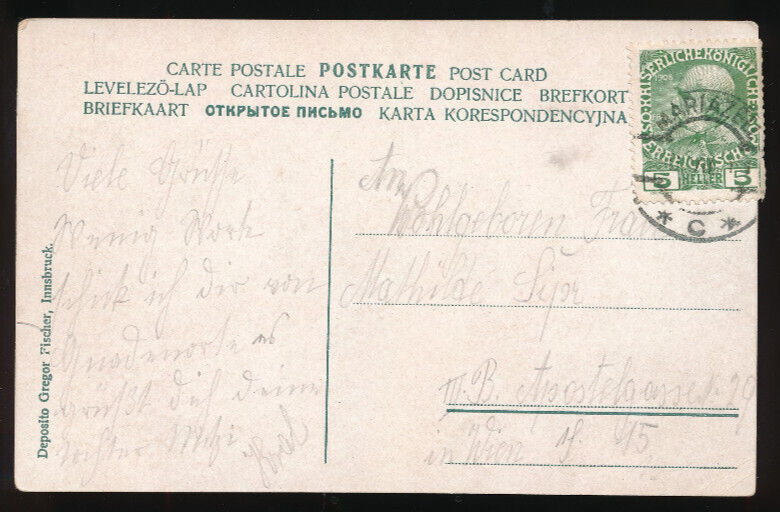 CARTE POSTALE POSTKARTE POST CARD
LEVELEZŐ-LAP CARTOLINA POSTALE DOPISNICE BREFKORT
BRIEFKAART ОТКРЫТОЕ ПИСЬМО KARTA KORESPONDENCYJNA
Viele Grüße
Wenig Worte
schick ich dir von
Gnadenorte es
grüßt dich deine
tochter Mitzi
An
Wohlgeboren Frau
Mathilde
III. B. Apostelgasse N. 29
in Wien
Deposito Gregor Fischer, Innsbruck.
KAISERLICHE KÖNIGLICHE
ÖSTERREICHISCHE
1908
5 HELLER 5
MARIAZELL
* C *